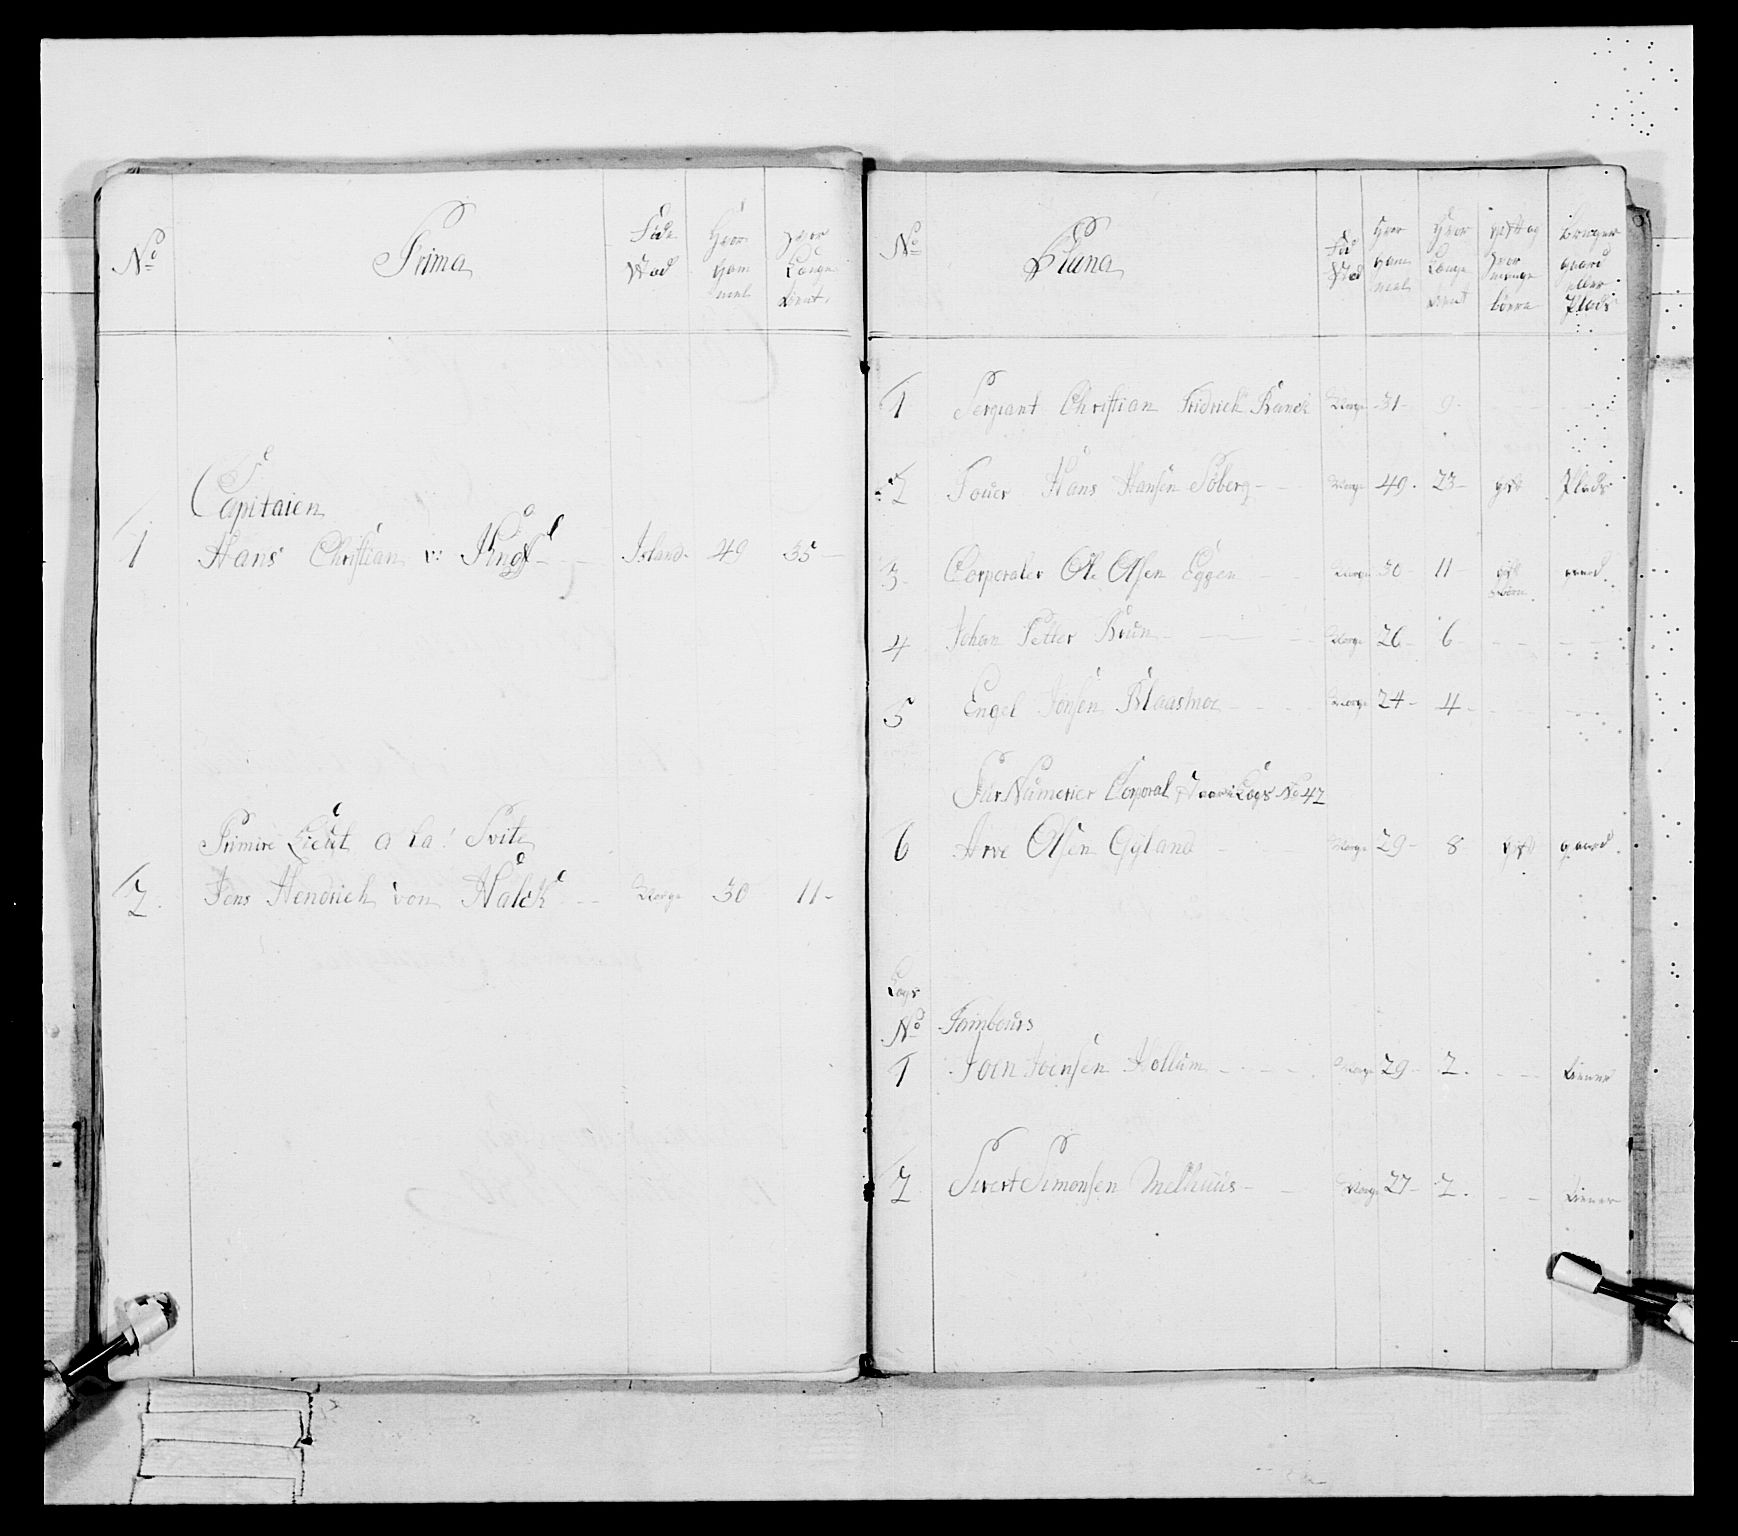 No
Prima
Föde
Stad
Hvor
Gam
mel
Hvor
Længe
tient
Capitaien
1 Hans Christian v: Knoff Island 49 35
Primire Lieut a la Svite
2 Jens Hendrich von Halck Norge 30 11
No
Pluna
Föd
Stad
Hvor
gam
mel
Hvor
Længe
tient
gift og
hvor
mange
börn
bruger
gaard
eller
Plads
1 Sergiant Christian Fridrich Banck Norge 31 9
2 Fouer Hans Hansen Söberg Norge 49 23 gift Plads
3 Corporaler Ole Olsen Eggen Norge 30 11 gift gaard
börn
4 Johan Petter Brun Norge 26 6
5 Engel Jonsen Blaasmoe Norge 24 4
Sur Numerier Corporal Staar i Logs No 42
6 Arve Olsen Gyland Norge 29 8 gift gaard
Logs
No Tambours
1 Joen Joensen Hollum Norge 29 2 tiener
2 Sivert Simonsen Melhuus Norge 27 2 tiener